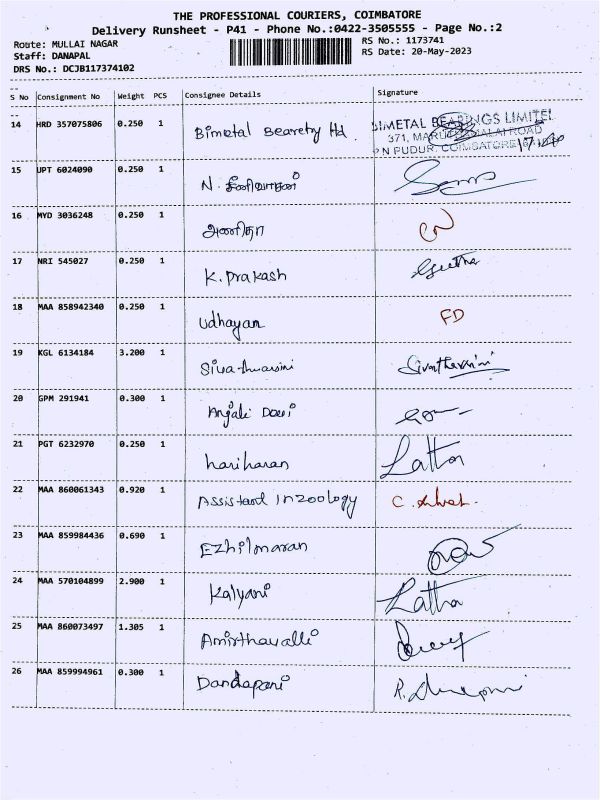 THE PROFESSIONAL COURIERS, COIMBATORE
Delivery Runsheet - P41 - Phone No.:0422-3505555 - Page No.:2
Route: MULLAI NAGAR RS No.: 1173741
Staff: DANAPAL RS Date: 20-May-2023
DRS No.: DCJB117374102
S No Consignment No Weight PCS Consignee Details Signature
14 HRD 357075806 0.250 1 Bimetal Bearetry Ltd. BIMETAL BEARINGS LIMITED
371, MARUDAMALAI ROAD
P N PUDUR, COIMBATORE
15 UPT 6024090 0.250 1 N.
16 MYD 3036248 0.250 1
17 NRI 545027 0.250 1 K. Prakash Geetha
18 MAA 858942340 0.250 1 Udhayan FD
19 KGL 6134184 3.200 1 Sivatharsini Sivatharsini
20 GPM 291941 0.300 1 Anjali Devi
21 PGT 6232970 0.250 1 hariharan Latha
22 MAA 860061343 0.920 1 Assistant in zoology C.
23 MAA 859984436 0.690 1 Ezhilmaran
24 MAA 570104899 2.900 1 Kalyani Latha
25 MAA 860073497 1.305 1 Amirthavalli
26 MAA 859994961 0.300 1 Dandapani R.